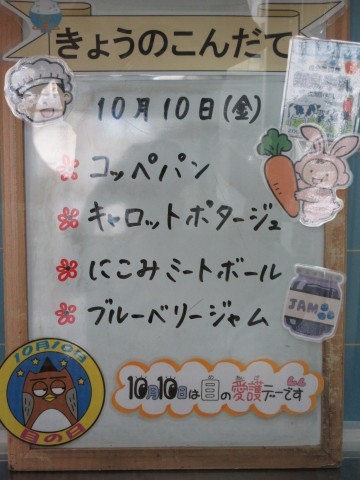 きょうのこんだて
10月10日(金)
コッペパン
キャロットポタージュ
にこみミートボール
ブルーベリージャム
JAM
10月10日
目の日
10月10日は目の愛護デーです